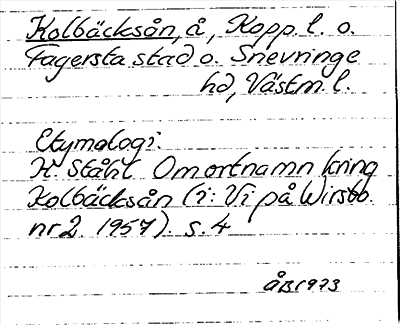 Kolbäcksån, å, Kopp. l. o.
Fagersta stad o. Snevringe
hd, Västm. l.
Etymologi:
H. Ståhl Om ortnamn kring
Kolbäcksån (i: Vi på Wirsbo.
nr 2. 1957). s. 4
ÅB1973